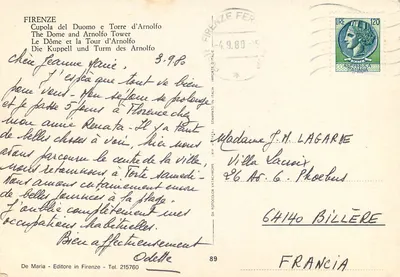 FIRENZE
Cupola del Duomo e Torre d'Arnolfo
The Dome and Arnolfo Tower
Le Dôme et la Tour d'Arnolfo
Die Kuppell und Turm des Arnolfo
3.9.80
Chère Jeanne Marie,
J'espère que tout va bien
pour vous. Mon séjour se prolonge
et je passe 5 jours à Florence chez
mon amie Renata. Il y a tant
de belles choses à voir. Hier nous
avons parcouru le centre de la ville,
nous retournons à Forte samedi.
Nous aurons certainement encore
de belles journées à la plage.
J'oublie complètement mes
occupations habituelles.
Bien affectueusement
Odette
FIRENZE FER
4.9.80
LIRE
120
Madame J.M. LAGARDE
Villa Lacroix
26 Av. G. Phoebus
64140 BILLÈRE
FRANCIA
De Maria - Editore in Firenze - Tel. 215760
89